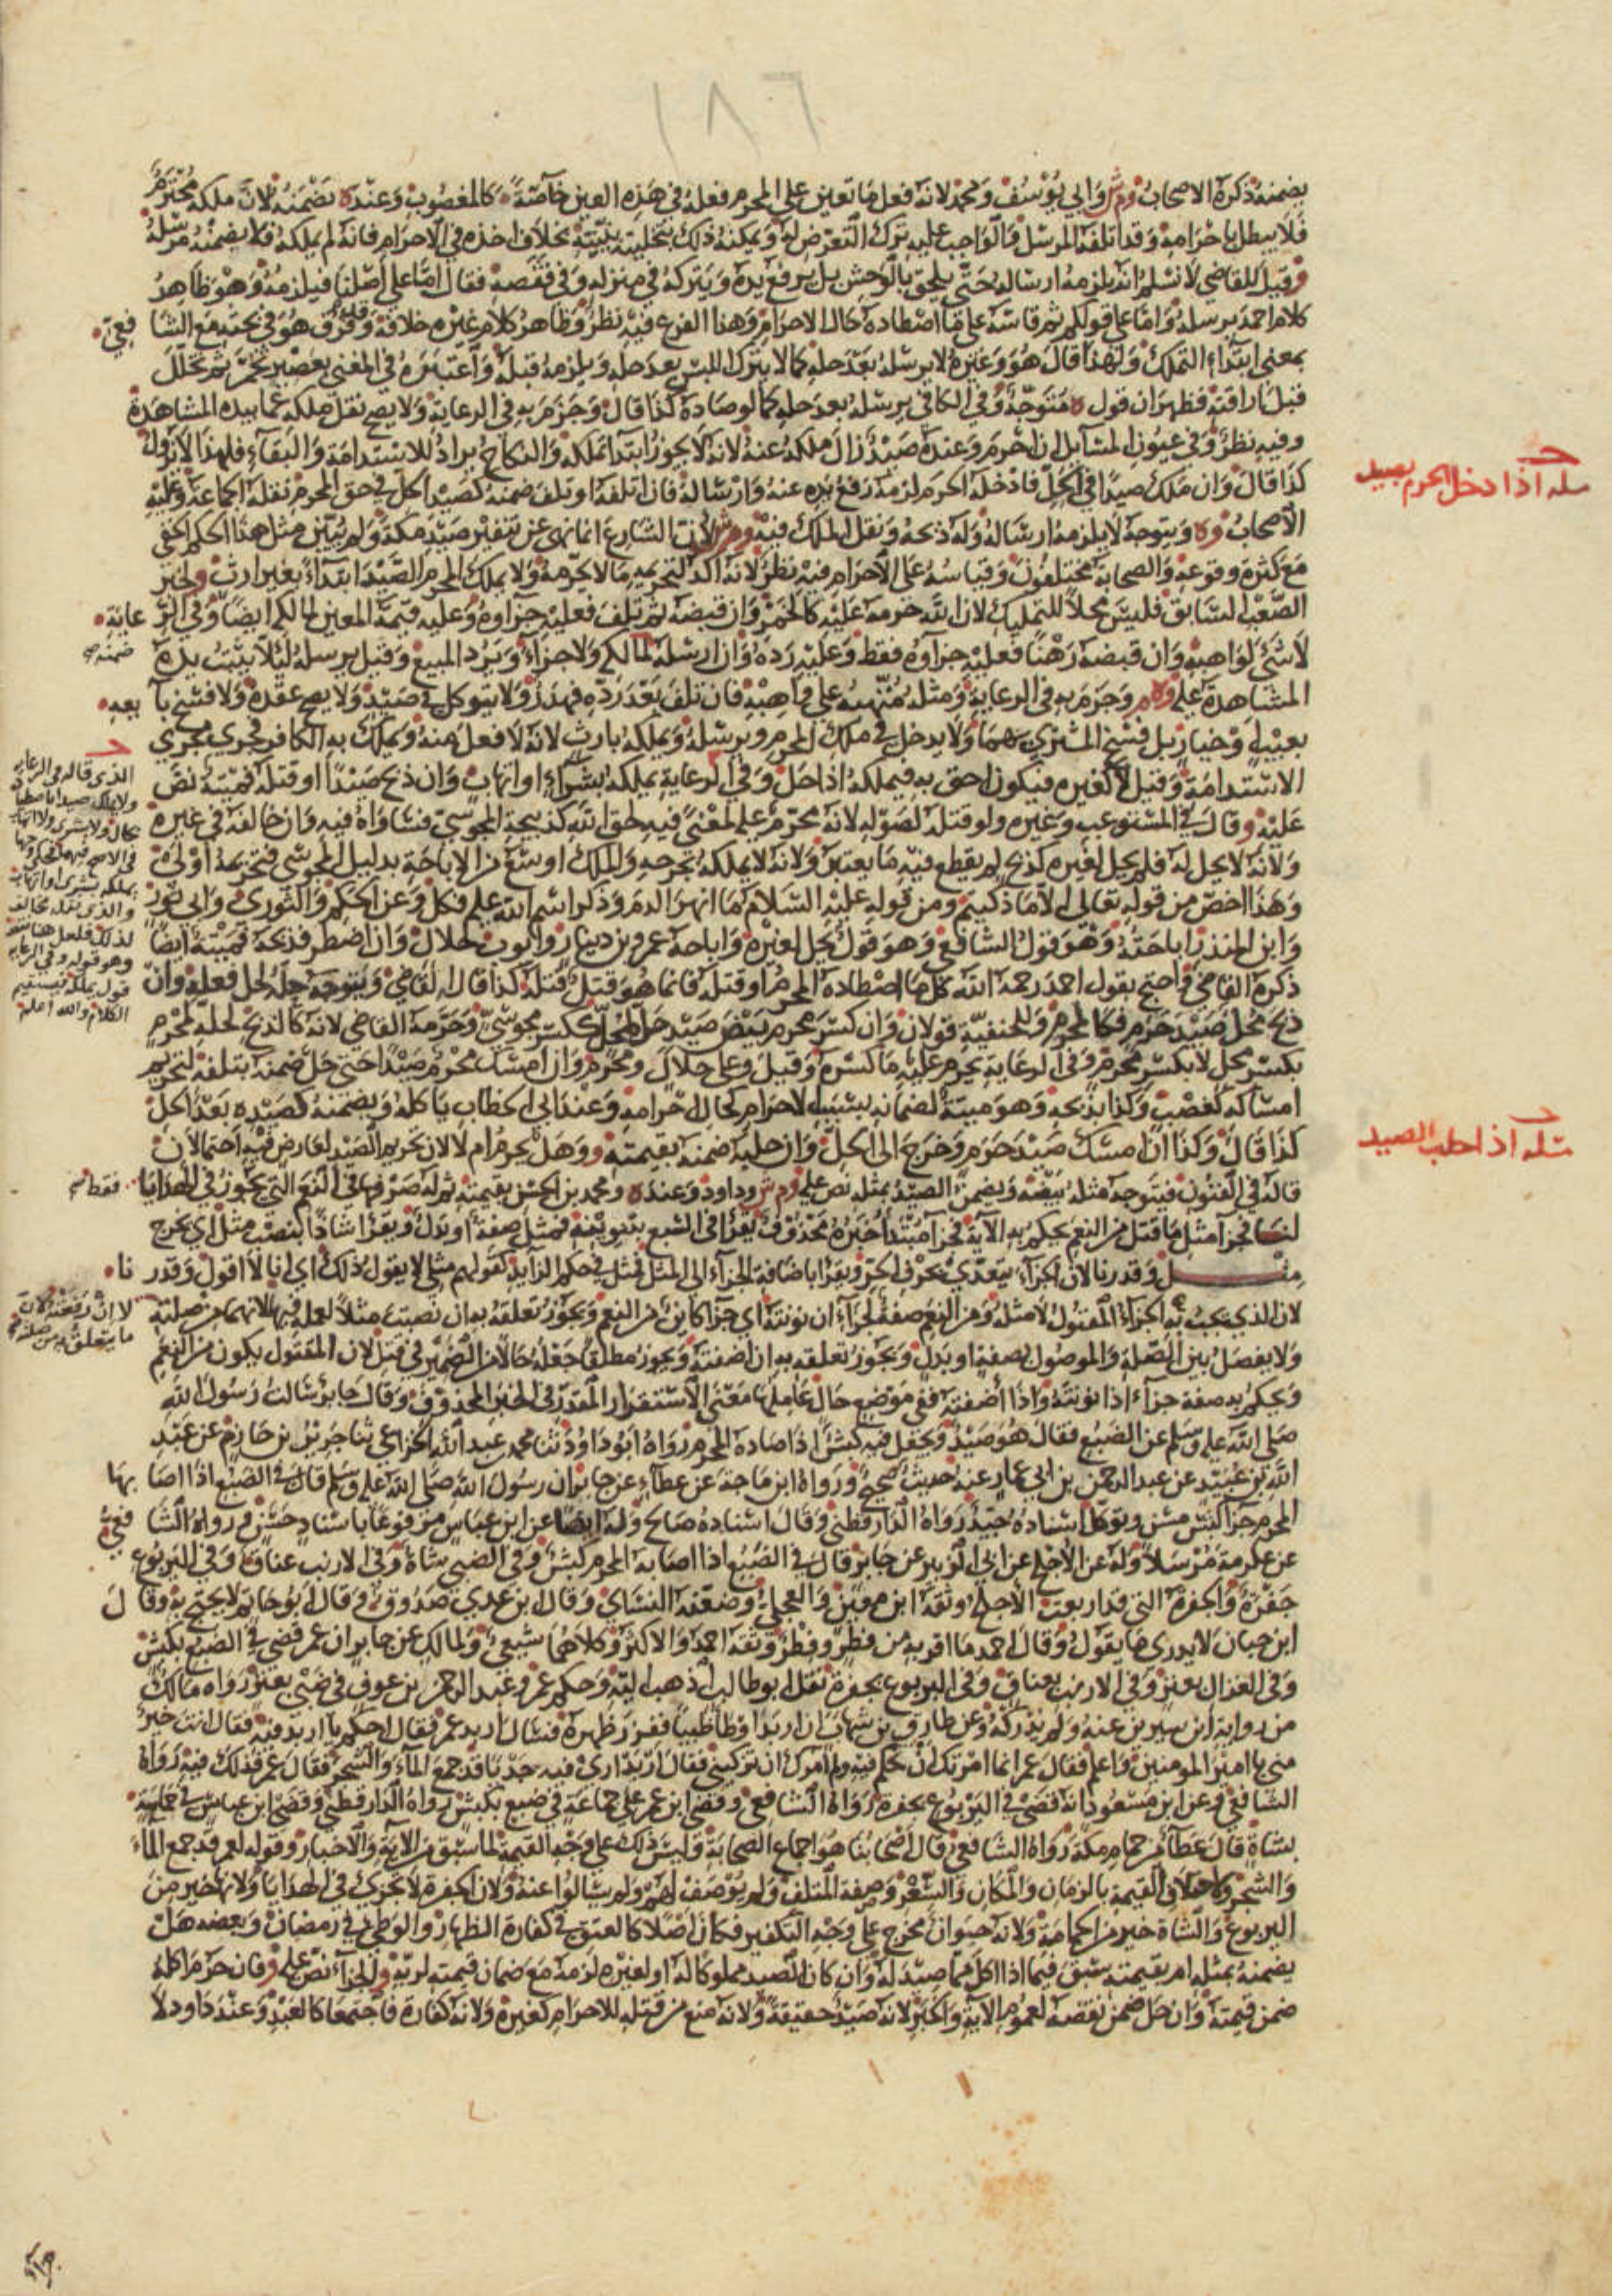 ١٨٦
يضمنه ذكره الاصحاب وم ش وابي يوسف ومحمد لانه فعل ما تعين على المحرم فعله في هذه العين خاصة كالمغصوب وعنده يضمنه لان ملكه محترم
فلا يبطل باحرامه وقد اتلفه المرسل والواجب عليه ترك التعرض له ويمكنه ذلك بتخليته ببيته بخلاف اخذه في الاحرام فانه لم يملكه فلا يضمنه مرسله
وقيل للقاضي لا نسلم انه يلزمه ارساله حتى يلحق بالوحش بل يرفع يده ويتركه في منزله وفي قفصه فقال اما على اصلنا فيلزمه وهو ظاهر
كلام احمد يرسله واما على قولكم ثم قاسه على ما اصطاده حال الاحرام وهذا الفرع فيه نظر وظاهر كلام غيره خلافه وفرق هو في بحثه مع الشافعي
بمعنى ابتداء التملك ولهذا قال هو وغيره لا يرسله بعد حله كما لا يترك اللبس بعد حله ويلزمه قبله واعتبره في المغني بعصير تخمر ثم تخلل
قبل اراقته فظهر ان قول ه متوجه وفي الكافي يرسله بعد حله كما لو صاده كذا قال وجزم به في الرعاية ولا يصح نقل ملكه عما بيده المشاهدة
وفيه نظر وفي عيون المسائل ان احرم وعنده صيد زال ملكه عنه لانه لا يجوز ابتدا تملكه والنكاح يراد للاستدامة والبقاء فلهذا لا يزول
كذا قال وان ملك صيدا في الحل فادخله الحرم لزمه رفع يده عنه وارساله فان اتلفه او تلف ضمنه كصيد الحل في حق المحرم نقله الجماعة وعليه
مسله اذا دخل الحرم بصيد
الاصحاب وه ويتوجه لا يلزمه ارساله وله ذبحه ونقل الملك فيه وم ش لان الشارع انما نهى عن تنفير صيد مكة ولم يبين مثل هذا الحكم الخفي
مع كثرة وقوعه والصحابة مختلفون وقياسه على الاحرام فيه نظر لانه اكد لتحريمه ما لا يحرمه ولا يملك المحرم الصيد ابتداء بغير ارث ولخبر
الصعب السابق فليس محلا للتمليك لان الله حرمه عليه كالخمر وان قبضه ثم تلف فعليه جزاوه وعليه قيمة المعين لمالكه ايضا وفي الرعاية
لا شي لواهبه وان قبضه رهنا فعليه جزاوه فقط وعليه رده وان ارسله لمالكه ولا جزاء ويرد المبيع وقيل يرسله ليلا يثبت يده
ضمنه صح
المشاهدة عليه وه م وجزم به في الرعاية ومثله متهبه على واهبه فان تلف بعد رده فهدر ولا يتوكل في صيد ولا يصح عقده ولا فسخ بايعه
بعيب وخيار بل فسخ المشتري بهما ولا يدخل في ملك المحرم ويرسله ويملكه بارث لانه لا فعل منه ويملك به الكافر فجرى مجرى
الاستدامة وقيل لا كغيره فيكون احق به فيملكه اذا حل وفي الرعاية يملكه بشراء او اتهاب وان ذبح صيدا او قتله فميتة نص
عليه وقال في المستوعب وغيره ولو قتله لصوله لانه محرم عليه لمعنى فيه لحق الله كذبيحة المجوسي فتساواه فيه وان خالفه في غيره
ولانه لا يحل له فلم يحل لغيره كذبح لم يقطع فيه ما يعتبر ولانه لا يملكه بجرحه والملك اوسع من الاباحة بدليل المجوسي فتحريمه اولى
وهذا اخص من قوله تعالى الا ما ذكيتم ومن قوله عليه السلام ما انهر الدم وذكر اسم الله عليه فكل وعن الحكم والثوري وابي ثور
وابن المنذر اباحته وهو قول الشافعي وهو قول يحل لغيره واباحه عمرو بن دينار وايوب لحلال وان اضطر فذبحه فميتة ايضا
الذي قاله في الرعايه
ذكره القاضي واحتج بقول احمد رحمه الله كل ما اصطاده المحرم او قتله فانما هو قتل قتله كذا قال القاضي ويتوجه حله لحل فعله وان
الكلام والله اعلم
ذبح محل صيد حرم فكالمحرم وللحنفية قولان وان كسر محرم بيض صيد حل لمحل ككسر مجوسي وحرمه القاضي لانه كالذبح لحله لمحرم
بكسر محل لا بكسر محرم وفي الرعاية يحرم عليه ما كسره وقيل وعلى حلال ومحرم وان امسك محرم صيدا حتى حل ضمنه بتلفه لتحريم
امساكه كغصب وكذا يذبحه وهو ميتة لضمانه بسبب الاحرام كحال احرامه وعند ابي الخطاب ياكله ويضمنه كصيده بعد الحل
كذا قال وكذا ان امسك صيد حرم وخرج الى الحل وان حلبه ضمنه بقيمته ووهل يحرم ام لا لان تحريم الصيد لعارض فيه احتمالان
مسله اذا حلب الصيد
قاله في الفنون فيتوجه مثله بيضه ويضمن الصيد بمثله نص عليه وم ش وداود وعنده ومحمد بن الحسن بقيمته ثم له صرفها في النعم التي تجوز في الهدايا فقط
لنا فجزا مثل ما قتل من النعم يحكم به الاية فجزآ مبتدا خبره محذوف يقرا في السبع بتنوينه فمثل صفة او بدل ويقرا شاذا بنصب مثل اي يخرج
مثل وقدرنا لان الجزاء يتعدى بحرف الجر ويقرا باضافة الجزاء الى المثل فمثل في حكم الزايد كقولهم مثلي لا يقول ذلك اي انا لا اقول وقدرنا
لان الذي يجب به الجزاء المقتول لا مثله ومن النعم صفة لجزاء ان نونته اي جزا كاين من النعم ويجوز تعلقه به ان نصبت مثلا لعمله فيهما لانهما من صلته
ولا يفصل بين الصلة والموصول بصفة او بدل ويجوز تعلقه به ان اضفته ويجوز مطلقا جعله حالا من الضمير في قتل لان المقتول يكون من النعم
ويحكم به صفة جزاء اذا نونته واذا اضفته ففي موضع حال عاملها معنى الاستقرار المقدر في الخبر المحذوف وقال جابر سالت رسول الله
صلى الله عليه وسلم عن الضبع فقال هو صيد ويجعل فيه كبش اذا صاده المحرم رواه ابو داود ثنا محمد بن عبد الله الخزاعي ثنا جرير بن حازم عن عبد
الله بن عبيد عن عبد الرحمن بن ابي عمار عنه حديث صحيح ورواه ابن ماجة عن عطاء عن جابر ان رسول الله صلى الله عليه وسلم قال في الضبع اذا اصابها
المحرم جزا كبش مسن وتوكل اسناده جيد رواه الدارقطني وقال اسناده صالح وله ايضا عن ابن عباس مرفوعا باسناد حسن ورواه الشافعي
عن عكرمة مرسلا وله عن الاجلح عن ابي الزبير عن جابر قال في الضبع اذا اصابه المحرم كبش وفي الضبي شاة وفي الارنب عناق وفي اليربوع
جفرة والجفرة التي قد اربعت الاجلح وثقه ابن معين والعجلي وضعفه النساي وقال ابن عدي صدوق وقال ابو حاتم لا يحتج به وقال
ابن حبان لا يدري ما يقول وقال احمد ما اقربه من فطر وفطر وثقه احمد والاكثر وكلاهما شيعي ولمالك عن جابر ان عمر قضى في الضبع بكبش
وفي الغزال بعنز وفي الارنب بعناق وفي اليربوع بجفرة نقل ابو طالب اذهب اليه وحكم عمر وعبد الرحمن بن عوف في ضبي بعنز رواه مالك
من رواية ابن سيرين عنه ولم يدركه وعن طارق بن شهاب ان اربدا وطا ظبيا ففزر ظهره فسال اربد عمر فقال احكم يا اربد فيه فقال انت خير
مني يا امير المومنين واعلم فقال عمر انما امرتك ان تحكم فيه ولم امرك ان تزكيني فقال اربد ارى فيه جديا قد جمع الماء والشجر فقال عمر فذلك فيه رواه
الشافعي وعن ابن مسعود انه قضى في اليربوع بجفرة رواه الشافعي وقضى ابن عمر على جماعة في ضبع بكبش رواه الدارقطني وقضى ابن عباس في حمامة
بشاة قال عطاء من حمام مكة رواه الشافعي قال اصحابنا هو اجماع الصحابة وليس ذلك على وجه القيمة لما سبق من الاية والاخبار وقوله لعمر قد جمع الماء
والشجر ولاختلاف القيمة بالزمان والمكان والسعر وصفة المتلف ولم يوصف لهم ولم يسالوا عنه ولان الجفرة لا تجزي في الهدايا ولانها خير من
اليربوع والشاة خير من الحمامة ولانه حيوان مخرج على وجه التكفير فكان اصلا كالعتق في كفارة الظهار والوطئ في رمضان وبعضه هل
يضمنه بمثله ام بقيمته سبق فيما اذا اكل مما صيد له وان كان الصيد مملوكا له او لغيره لزمه مع ضمان قيمته لربه والجزاء نص عليه وفان حرم اكله
ضمن قيمته وان حل ضمن نقصه لعموم الاية والخبر لانه صيد حقيقة ولانه منع من قتله للاحرام كغيره ولانه كفارة فاجتمعا كالعبد وعند داود لا